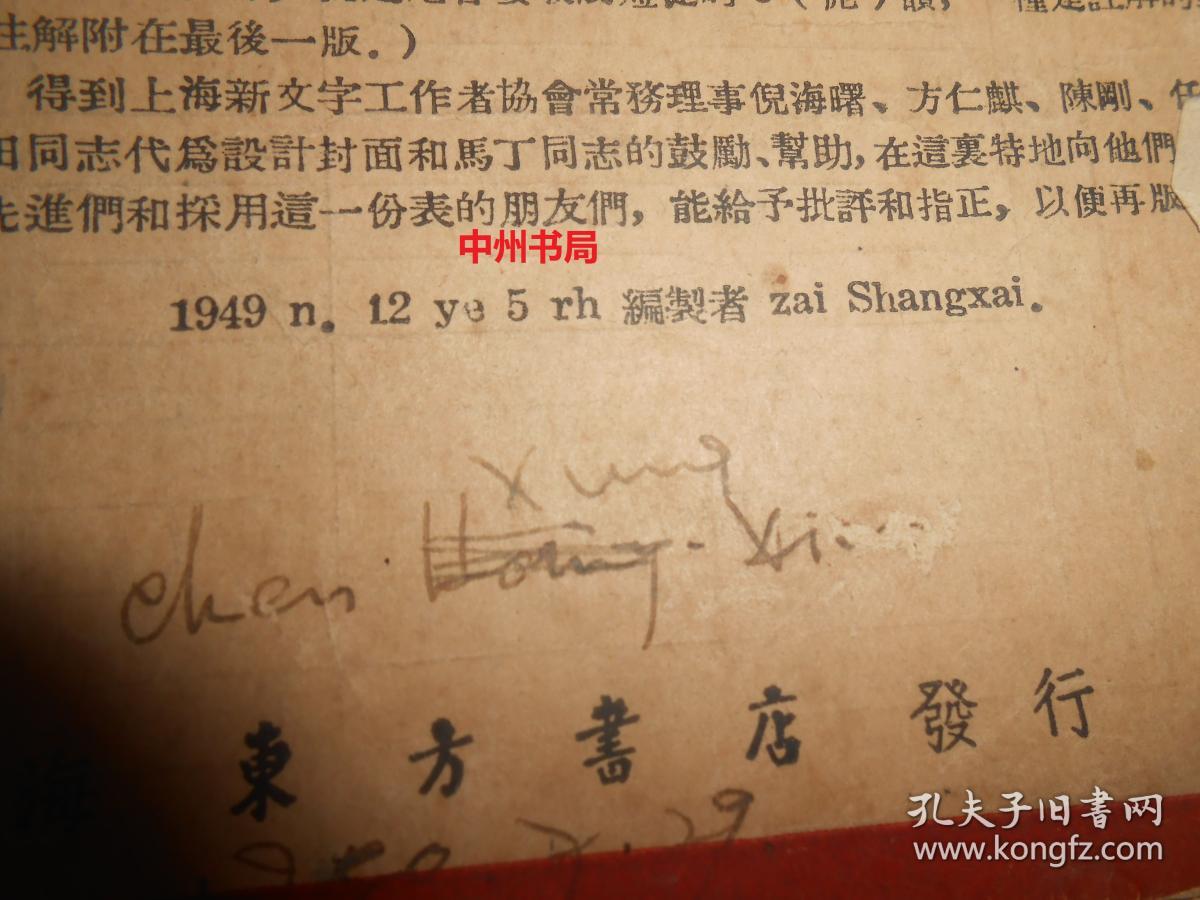 註解附在最後一版.)
得到上海新文字工作者協會常務理事倪海曙、方仁麒、陳剛、任
田同志代爲設計封面和馬丁同志的鼓勵、幫助, 在這裏特地向他們
先進們和採用這一份表的朋友們, 能給予批評和指正, 以便再版
中州书局
1949 n. 12 ye 5 rh 編製者 zai Shangxai.
Xung
chen Hong-Xi
海 東方書店發行
孔夫子旧书网
www.kongfz.com